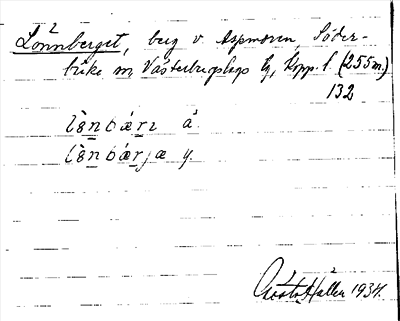 2
Lonnberget, berg v. Aspmoren, Söder-
bärke sn, Västerbergslags fg, Kopp. l. (255 m.)
132
lènbærı å.
lènbærjæ y.
Gösta Hallèr 1934.